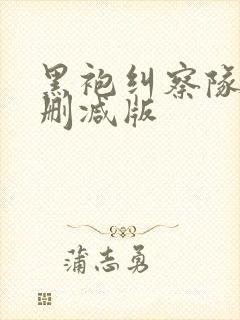 黑袍纠察隊
删减版
蒲志勇